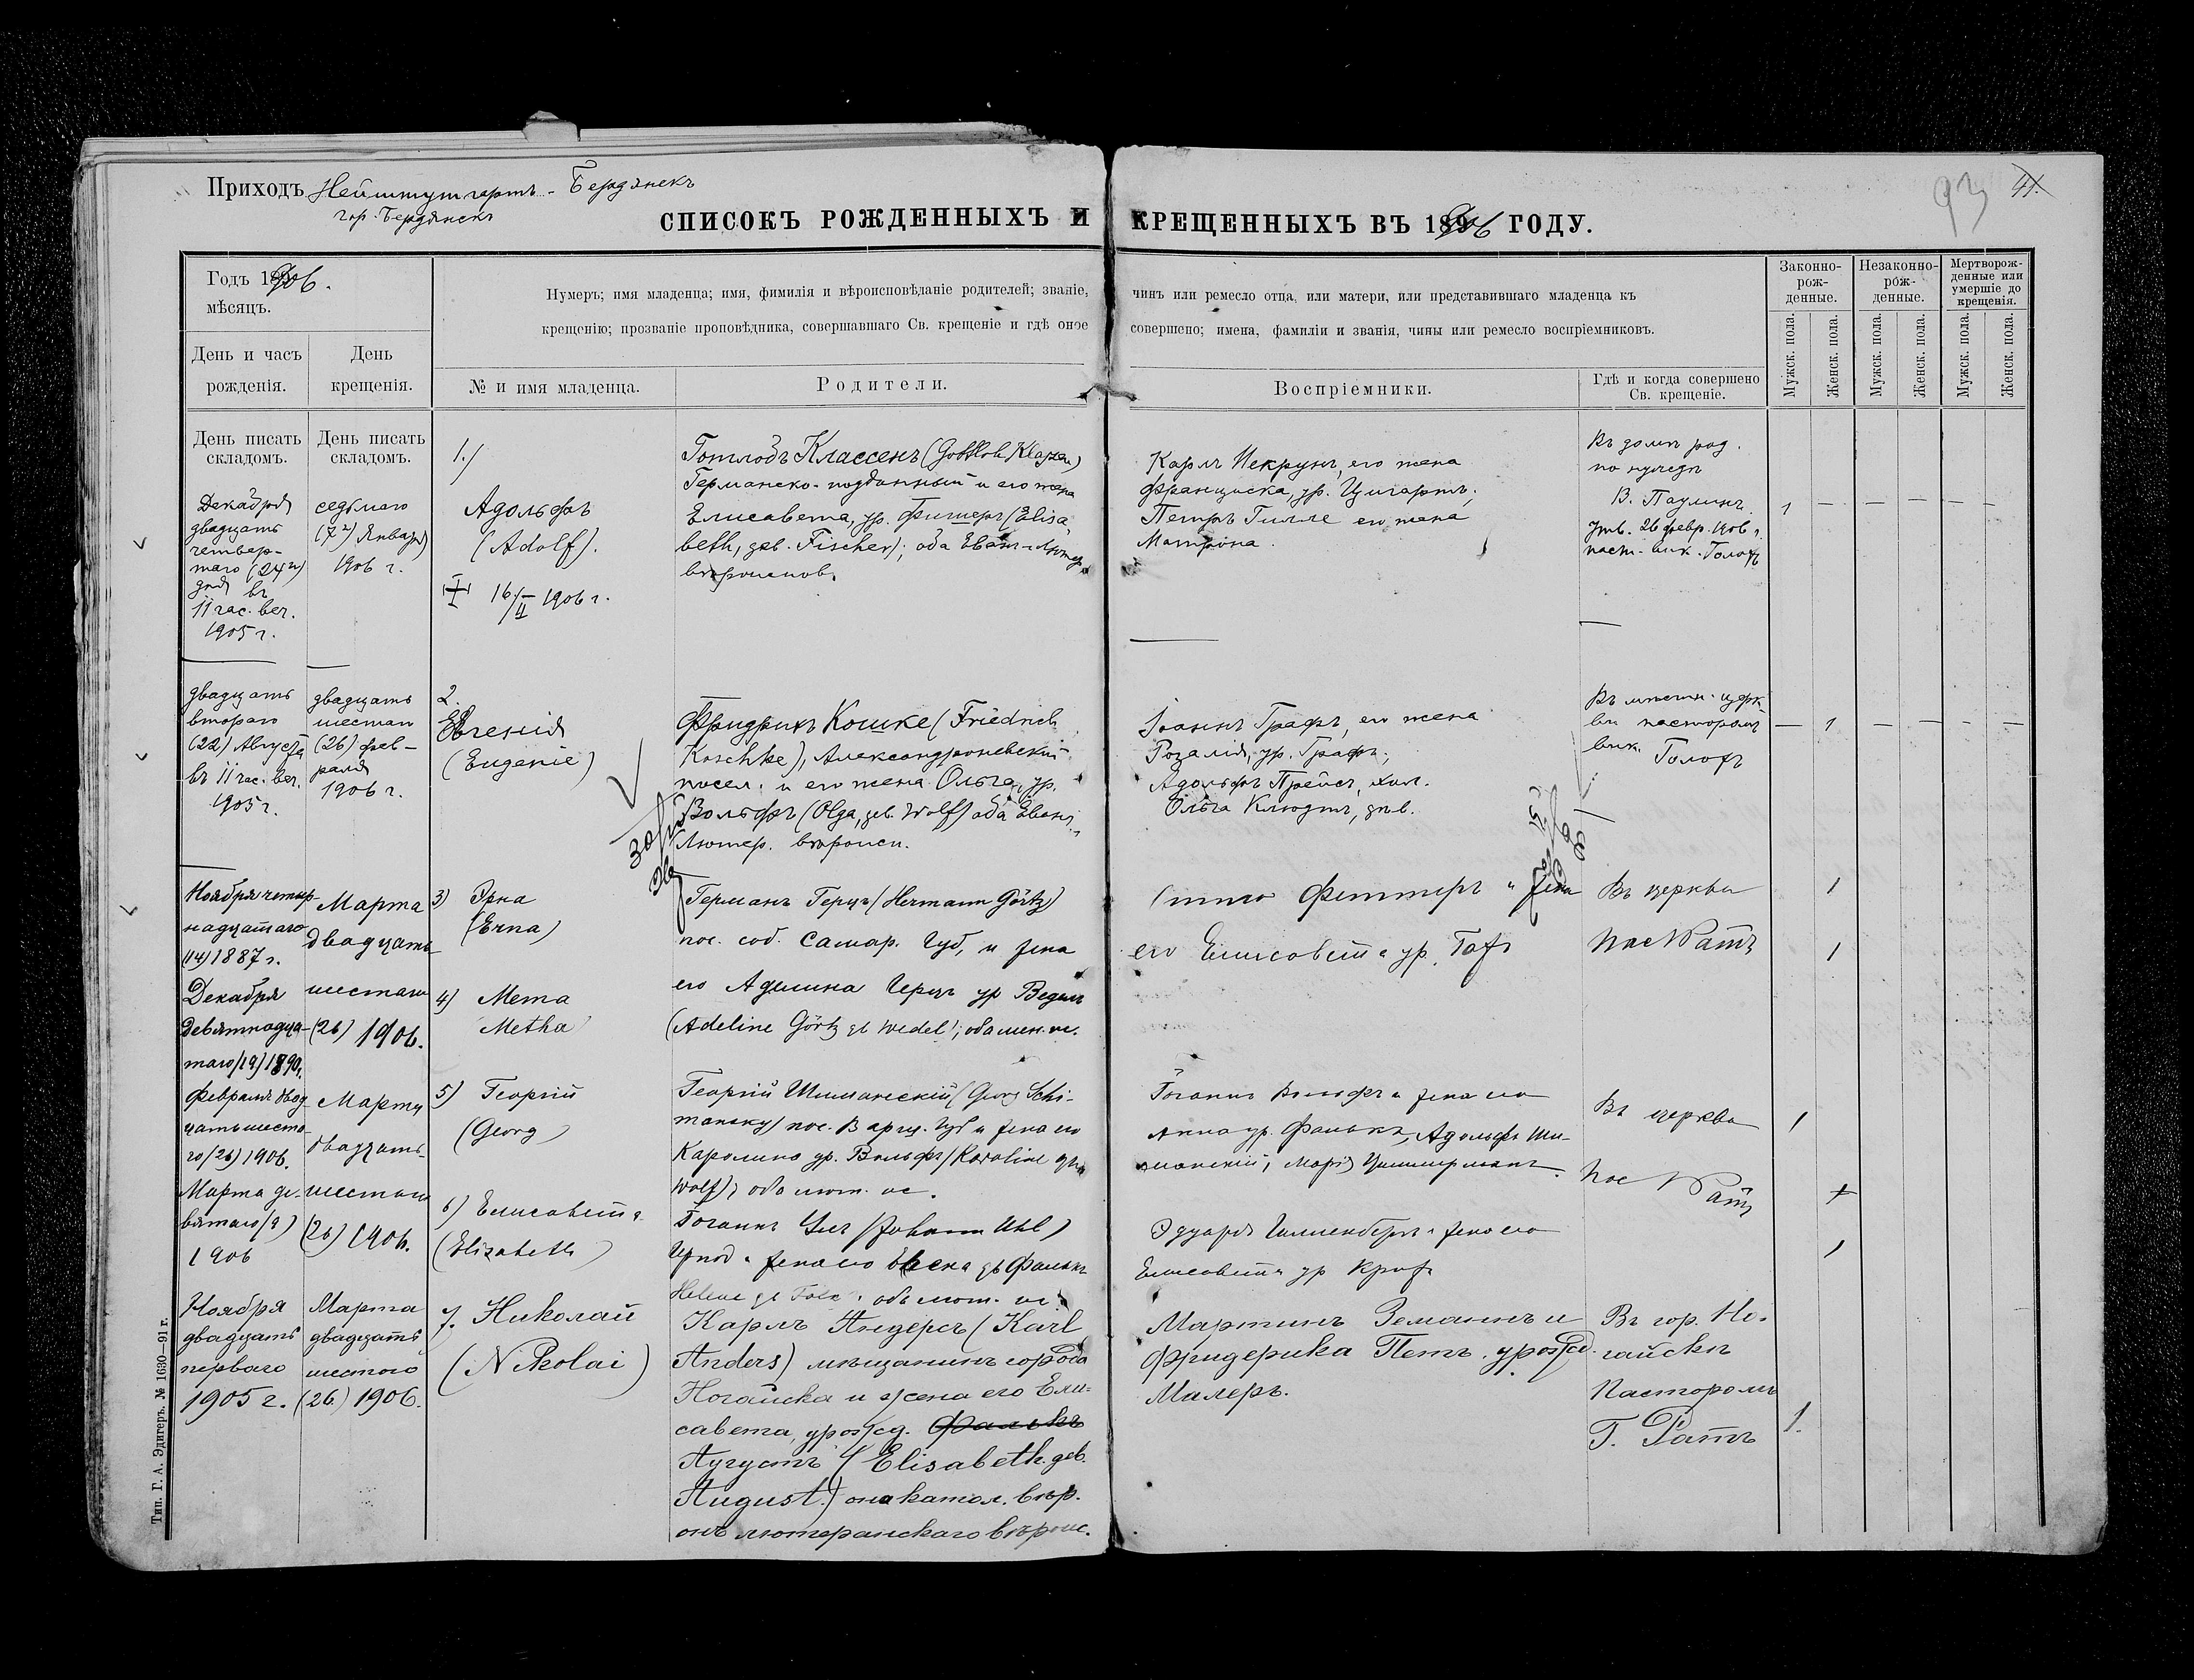 Приходъ Нейштутгартъ - Бердянскъ
гор. Бердянскъ
93
41.
СПИСОКЪ РОЖДЕННЫХЪ И КРЕЩЕННЫХЪ ВЪ 1906 ГОДУ.
Годъ 1906.
мѣсяцъ.
День и часъ
рожденія.
День
крещенія.
Нумеръ; имя младенца; имя, фимилія и вѣроисповѣданіе родителей; званіе, чинъ или ремесло отца, или матери, или представившаго младенца къ
крещенію; прозваніе проповѣдника, совершавшаго Св. крещеніе и гдѣ оное совершено; имена, фамиліи и званія, чины или ремесло воспріемниковъ.
№ и имя младенца.
Родители.
Воспріемники.
Гдѣ и когда совершено
Св. крещеніе.
Законно-
рож-
денные.
Незаконно-
рож-
денные.
Мертворож-
денные или
умершіе до
крещенія.
Мужск. пола.
Женск. пола.
Мужск. пола.
Женск. пола.
Мужск. пола.
Женск. пола.
День писать
складомъ.
День писать
складомъ.
Декабря
двадцать
четвер-
таго (24го)
дня въ
11 час. веч.
1905 г.
седьмого
(7го) Января
1906 г.
1.)
Адольфъ
(Adolf).
16/II 1906 г.
Готлобъ Классенъ (Gottlob Klassen)
Германско-подданный и его жена
Елисавета, ур. Фишеръ (Elisa-
beth, геб. Fischer); оба Еванг-Лютер.
вѣроиспов.
Карлъ его жена
Франциска, ур.
Петръ Гилле его жена
Матрона.
Въ домѣ род.
по нуждѣ
В. Паулинъ
утв. 26 февр. 1906 г.
паст-вик. Голофъ
1 — — — — —
двадцать
второго
(22) Августа
въ 11 час. веч.
1905 г.
двадцать
шестаго
(26) фев-
раля
1906 г.
2.
Евгенія
(Eugenie)
Фридрихъ Кошке (Friedrich
Koschke), Александроневскій
посел. и его жена Ольга, ур.
Вольфъ (Olga, геб. Wolf) оба Еванг.
Лютер. вѣроисп.
Іоаннъ Графъ, его жена
Розалія, ур. Графъ;
Адольфъ Прейсъ, хол.
Ольга Клюдтъ, дѣв.
Въ мѣстн. церк-
ви пасторомъ
вик. Голофъ
— 1 — — — —
Ноября четыр-
надцатаго
(14) 1887 г.
Марта
двадцать
3) Эрна
(Erna)
Германъ Герцъ (Hermann Görtz)
пос. соб. Самар. Губ. и жена
Феттеръ и жена
его Елисавета ур.
Въ церкви
Пас Ратъ
1
1
Декабря
девятнадца-
таго (19) 1890 г.
шестаго
(26) 1906.
4) Мета
Metha
его Аделина Герцъ ур Ведель
(Adeline Görtz геб Wedel); оба мен. ис.
Февраля двад-
цать шесто-
го (26) 1906.
Марта
двадцать
5) Георгій
(Georg)
Георгій Шиманскій (Georg Schi-
mansky) пос. Варш. Губ и жена его
Каролина ур. Вольфъ (Karoline геб
Wolf); оба лют. ис.
Іоганнъ Вольфъ и жена его
Анна ур. Фалькъ, Адольфъ Ши-
манскій, Марія Циммерманъ.
Въ церкви
Пас Ратъ
1
Марта де-
вятаго (9)
1906
шестаго
(26) 1906.
6) Елисавета
(Elizabeth)
Іоганнъ Уль (Johann Uhl)
и жена его Елена геб Фалькъ
Helene геб Falk; оба лют. ис.
Эдуардъ и жена его
Елисавета ур
1
Ноября
двадцать
перваго
1905 г.
Марта
двадцать
шестого
(26.) 1906.
7. Николай
(Nikolai)
Карлъ Андерсъ (Karl
Anders) мѣщанинъ города
Ногайска и жена его Ели-
савета, урожд. Фалькъ
Аугустъ (Elisabeth. геб.
August.) она катол. вѣр.
онъ лютеранскаго вѣроис.
Мартинъ Земаннъ и
Фридерика Петъ. урожд.
Малеръ.
Въ гор. Но-
гайскѣ
Пасторомъ
Г. Ратъ
1.
Тип. Г. А. Эдигеръ. № 1630—91 г.